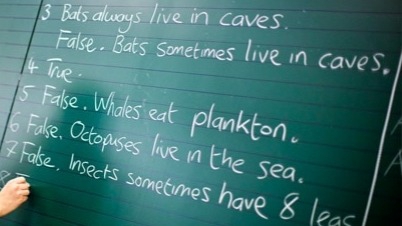 3 Bats always live in caves.
False. Bats sometimes live in caves.
4 True.
5 False. Whales eat plankton.
6 False. Octopuses live in the sea.
7 False. Insects sometimes have 8 legs
8